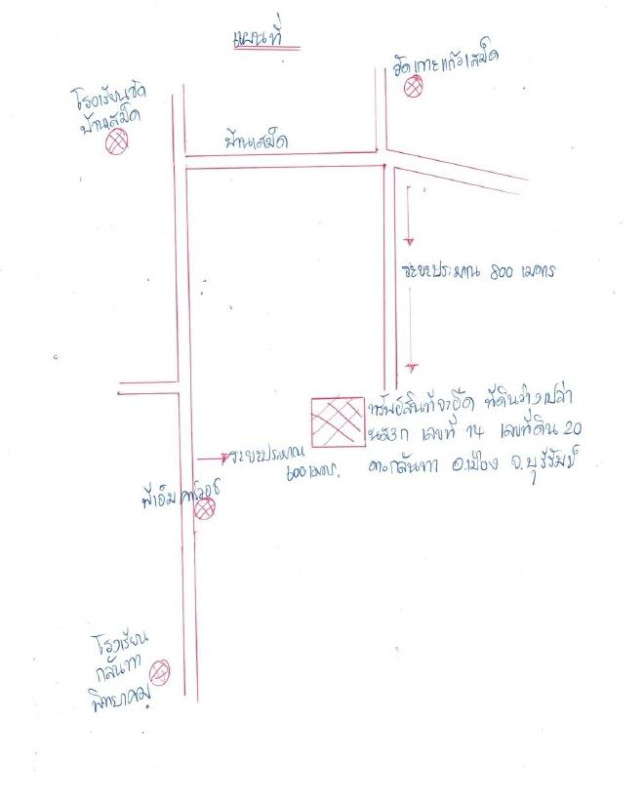 แผนที่
วัดเกาะแก้วเสม็ด
โรงเรียนวัด
บ้านเสม็ด
บ้านเสม็ด
ระยะประมาณ 800 เมตร
ทรัพย์สินที่จะยึด ที่ดินว่างเปล่า
นส3ก เลขที่ 14 เลขที่ดิน 20
ต.กลันทา อ.เมือง จ.บุรีรัมย์
ระยะประมาณ
600 เมตร.
พีเอ็ม
โรงเรียน
กลันทา
พิทยาคม